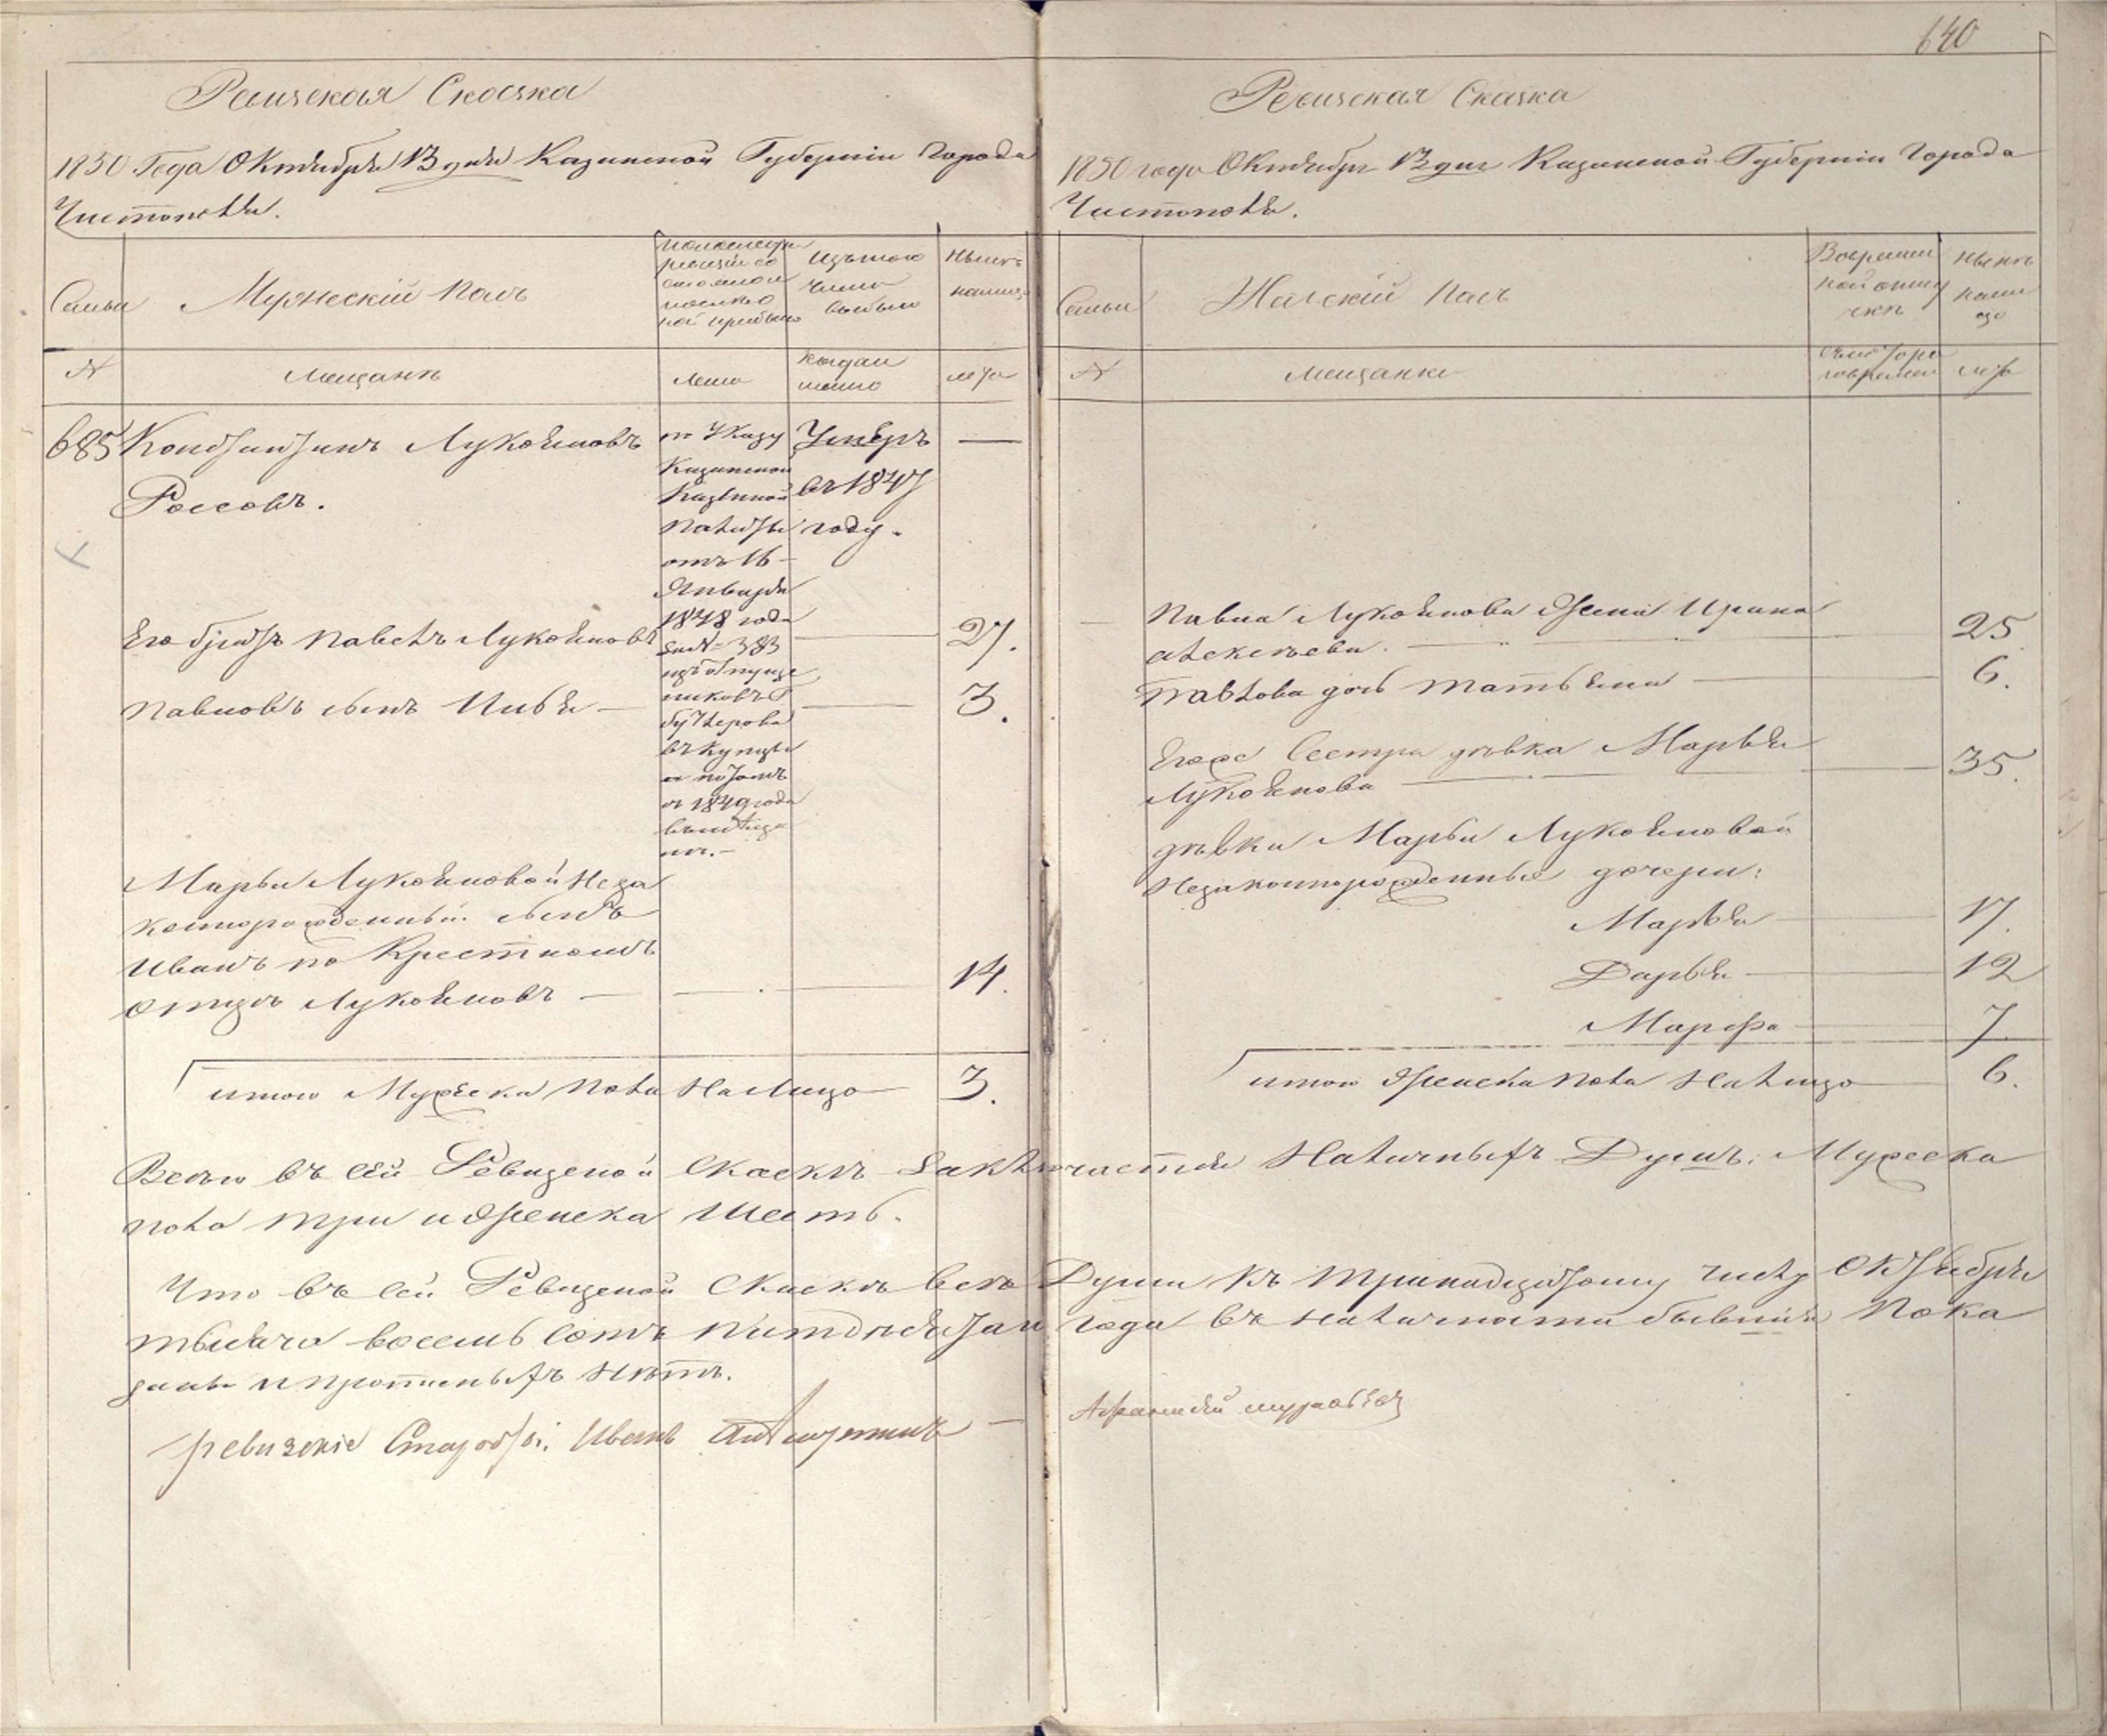 Ревизская Сказка
1850 Года Октября 13 дня Казанской Губернии Города
Чистополя.
Семьи
Мужеский пол
по последней
ревизіи со
стояло и
после
той прибыло
Изъ того
числа
выбыло
Ныне
налицо
№
мещане
лета
когда
имянно
лета
685 Константинъ Лукояновъ
Россовъ.
по Указу
Казанской
Казенной
Палаты
отъ 16
Января
1848 года
за № 383
изъ отпуще
никовъ Г
бутлерова
въ купцы
а потомъ
съ 1849 года
въ мещан
ин.
Умеръ
въ 1847
году.
—
Его братъ Павелъ Лукояновъ — 27.
Павловъ сынъ Илья — 3.
Марьи Лукояновой Неза
коннорожденный сынъ
Иванъ по Крестному
Отцу Лукояновъ — 14.
итого Мужеска пола На Лицо — 3.
640
Ревизская Сказка
1850 года Октября 13 дня Казанской Губерніи Города
Чистополя.
Семьи
Женскій пол
Во времен
ной отлу
чке
Ныне
нали
цо
№
мещанки
съ которо
го времени
лета
Павла Лукоянова Жена Ирина
алексеева. — 25
Павлова дочь Татьяна — 6.
Егоже Сестра девка Марья
Лукоянова — 35.
девки Марьи Лукояновой
Незаконнорожденные дочери:
Марья — 17.
Дарья — 12
Марфа — 7
итого Женска пола На лицо — 6.
Всего въ сей Ревизской Скаске заключается Наличныхъ Душъ: Мужеска
пола три и Женска Шесть.
Что въ сей Ревизской Скаске все Души къ тринадцатому числу Октября
тысяча восемь сотъ пятдесятаго года въ наличности бывшия Пока
заны и прописныхъ Нетъ.
ревизские Старосты: Иванъ —